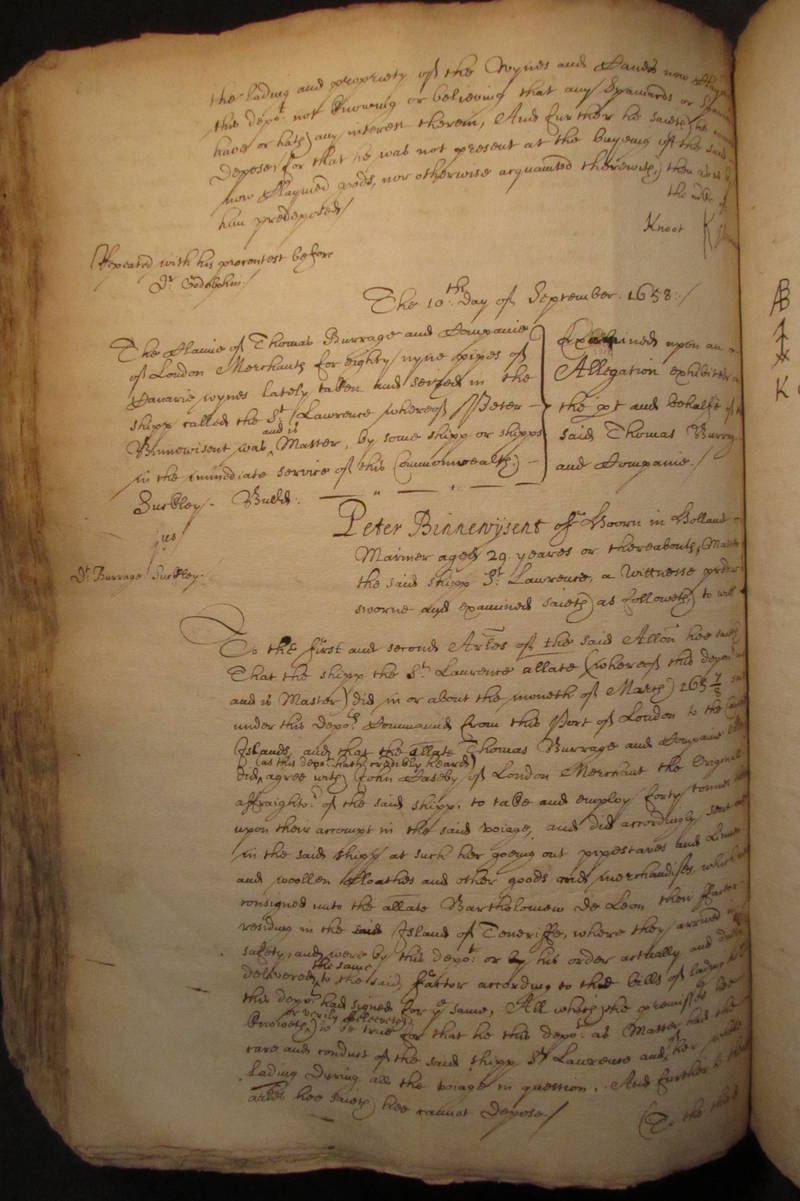 the lading and propriety of the Wynes and
this depo:t not knowing or believing that any Spaniards or
have or hath any interest therein, And further he saieth he
depose, for that he was not present at the buyeing of the said
now claymed goods, nor otherwise acquainted therewith then as is by
him predeposed/
Knoot
Repeated with his precontest before
Dr. Godolphin./
The 10:th Day of September. 1658:/
The Clayme of Thomas Burrage and Companie
of London Merchants for eighty nyne pipes of
Canarie wynes lately taken and seized in the
shipp called the St. Lawrence whereof Peter
Binnewisent was and is Master, by some shipp or shipps
in the immediate service of this Commonwealth.)
Examined upon an
Allegation exhibited
the pt and behalfe of
said Thomas Burrage
and Companie./
Suckley. Budd.
jus
Dt. Burrage Suckley.
Peter Binnewijsent of Hoorn in Holland
Mariner aged 29 yeares or thereabouts, Master
the said shipp St. Lawrence, a Wittnesse
sworne and examined saieth as followeth, to witt
To the first and second Arles of the said Allon hee saieth
That the shipp the St. Lawrence allate (whereof this depon:t
and is Master) did in or about the moneth of March 1657/8
under this depo:ts Command from this Port of London to the
Islands, and that the allate Thomas Burrage and Companie
did, (as this depo:t hath credibly heard) agree with John Casby of London Merchant the Originall
affraighter of the said shipp, to take and employ forty tonnes
upon their accompt in the said voiage, and did accordingly
in the said shipp at such her goeing out pipestaves and
and woollen Cloathes and other goods and merchandises, which
consigned unto the allate Bartholomew De Leon their Factor
residing in the said Island of Teneriffe, where they arrived in
safety, and were by this depo:t or by his order actually and
delivered the same to the said Factor according to the bills of lading
this depo:t had signed for ye same, All which the premisses hee
knoweth or verily beleeveth to be true for that he this depo:t as Master had the
care and conduct of the said shipp St. Lawrence and of her
lading during all the voiage in question. And further to
arles hee saieth hee cannot depose./
To the third